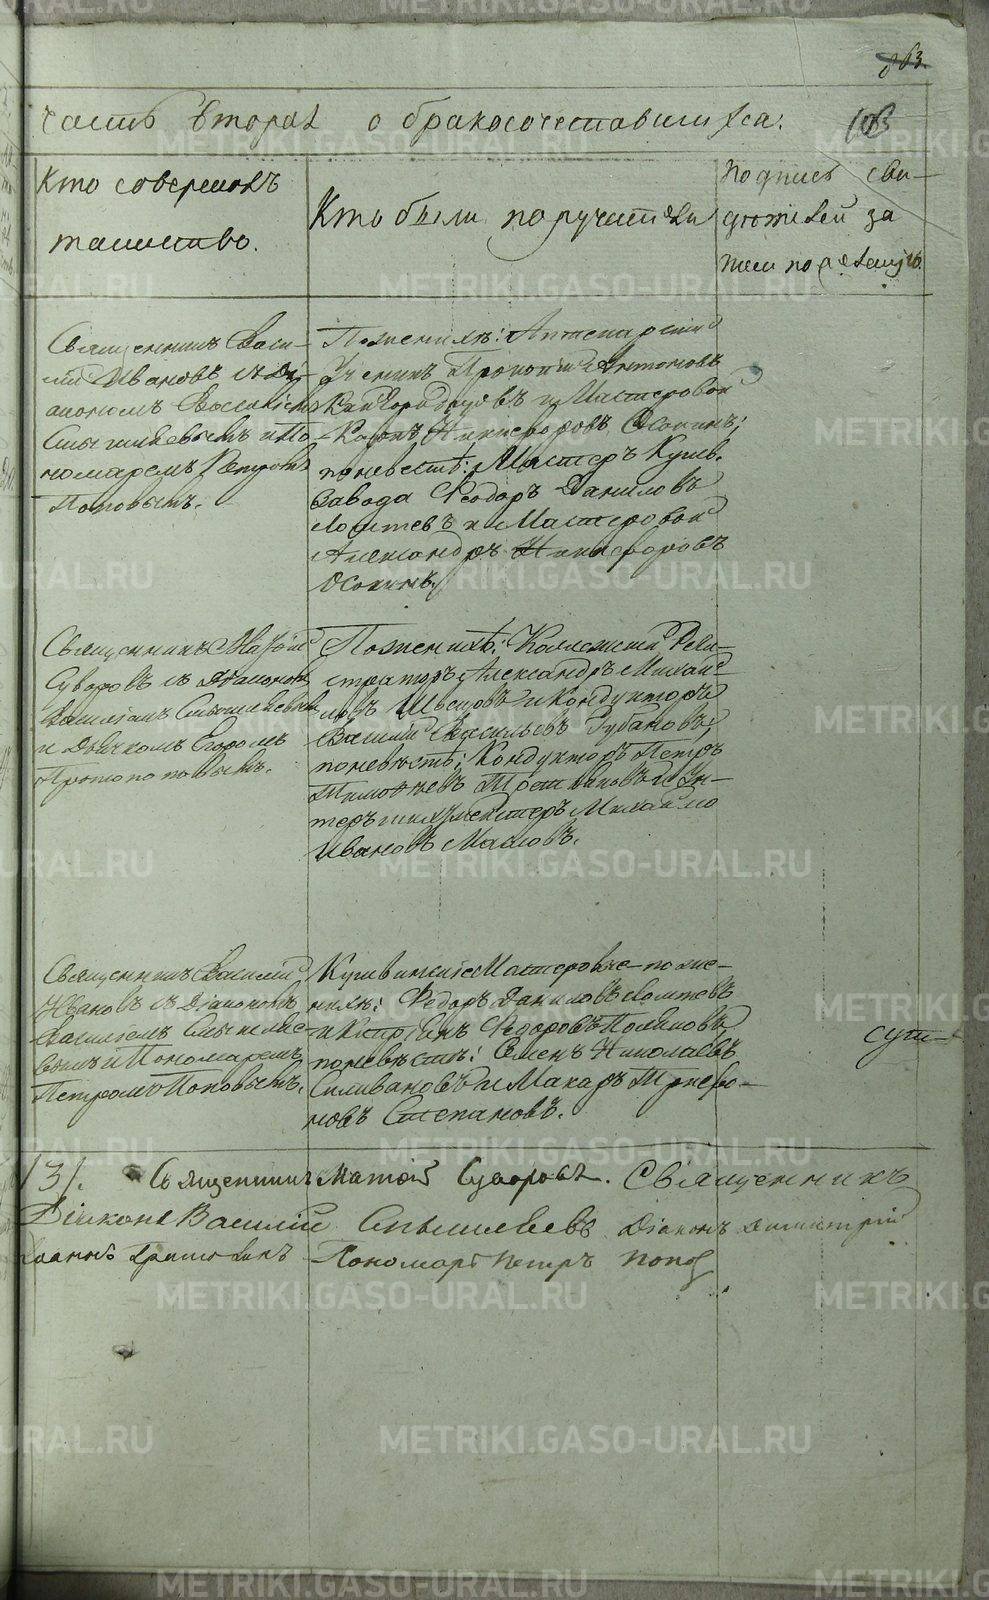 863
часть вторая о бракосочетавшихся.
103
Кто совершалъ
таинство.
Кто были поручители
Подпись сви-
дѣтелей за
писи по желанію.
Священникъ Васи-
лій Ивановъ съ Ді-
акономъ Василіемъ
Смышляевымъ и По-
номаремъ Петромъ
Поповымъ.
По женихѣ:
Ученикъ Прокопій Антоновъ
Кайгородцовъ и Мастеровой
Никифоровъ Осокинъ;
по невестѣ: Мастеръ Кушв.
Завода Феодоръ Даниловъ
Логтевъ и Мастеровой
Александръ Никифоровъ
Осокинъ.
Священникъ Матѳій
Суворовъ съ Діакономъ
Василіемъ Смышляевымъ
и Дьячкомъ Егоромъ
Протопоповымъ.
По женихѣ: Коллежскій Реги-
страторъ Александръ Михай-
ловъ Швецовъ и Кондукторъ
Василій Васильевъ Губановъ;
по невѣстѣ: Кондукторъ Петръ
Тимофѣевъ и Ун-
теръ шихтмейстеръ Михайло
Ивановъ Масловъ.
Священникъ Василій
Ивановъ съ Діакономъ
Василіемъ Смышляе-
вымъ и Пономаремъ
Петромъ Поповымъ.
Кушвинскіе Мастеровые по же-
нихѣ: Федоръ Даниловъ Логтевъ
и Федоровъ Поляковъ,
по невѣстѣ: Семенъ Николаевъ
Силивановъ и Макаръ Трифо-
новъ Степановъ.
/3/. Священникъ Матѳій Суворовъ. Священникъ
Діаконъ Василій Смышляевъ Діаконъ Димитрій
Пономарь Петръ Попов